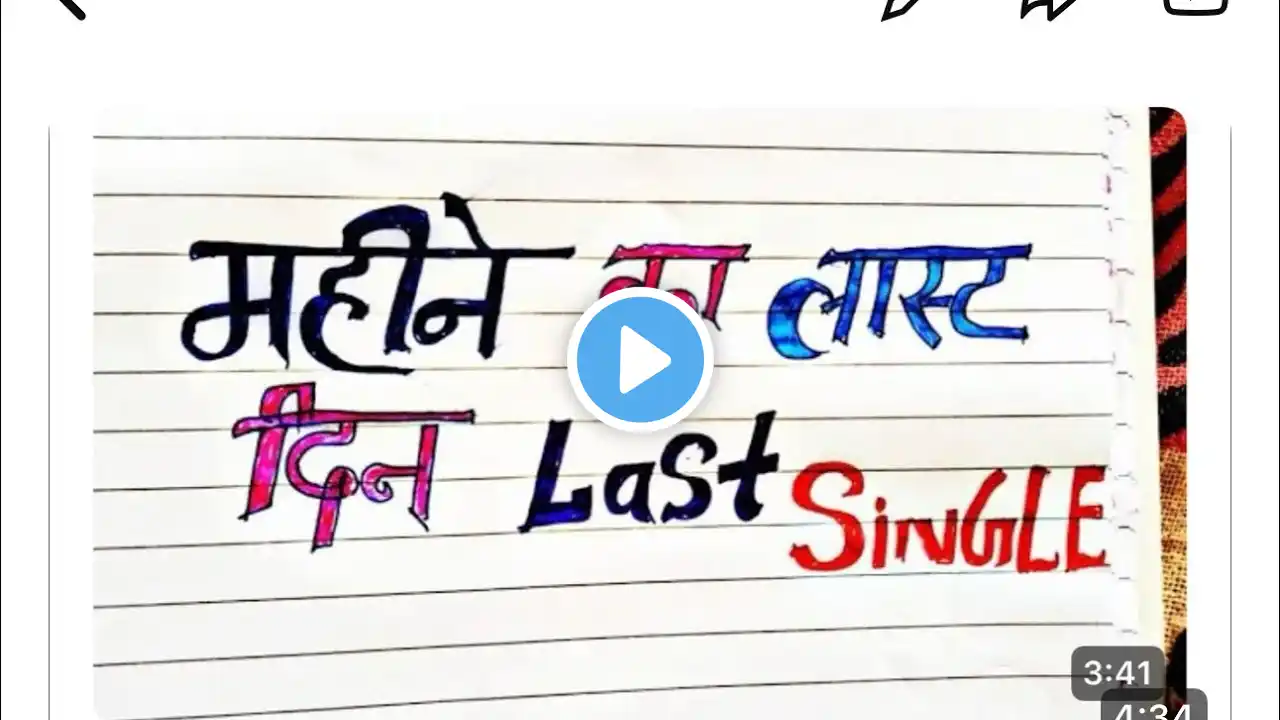 महीने का लास्ट
दिन Last SINGLE
3:41
4:34